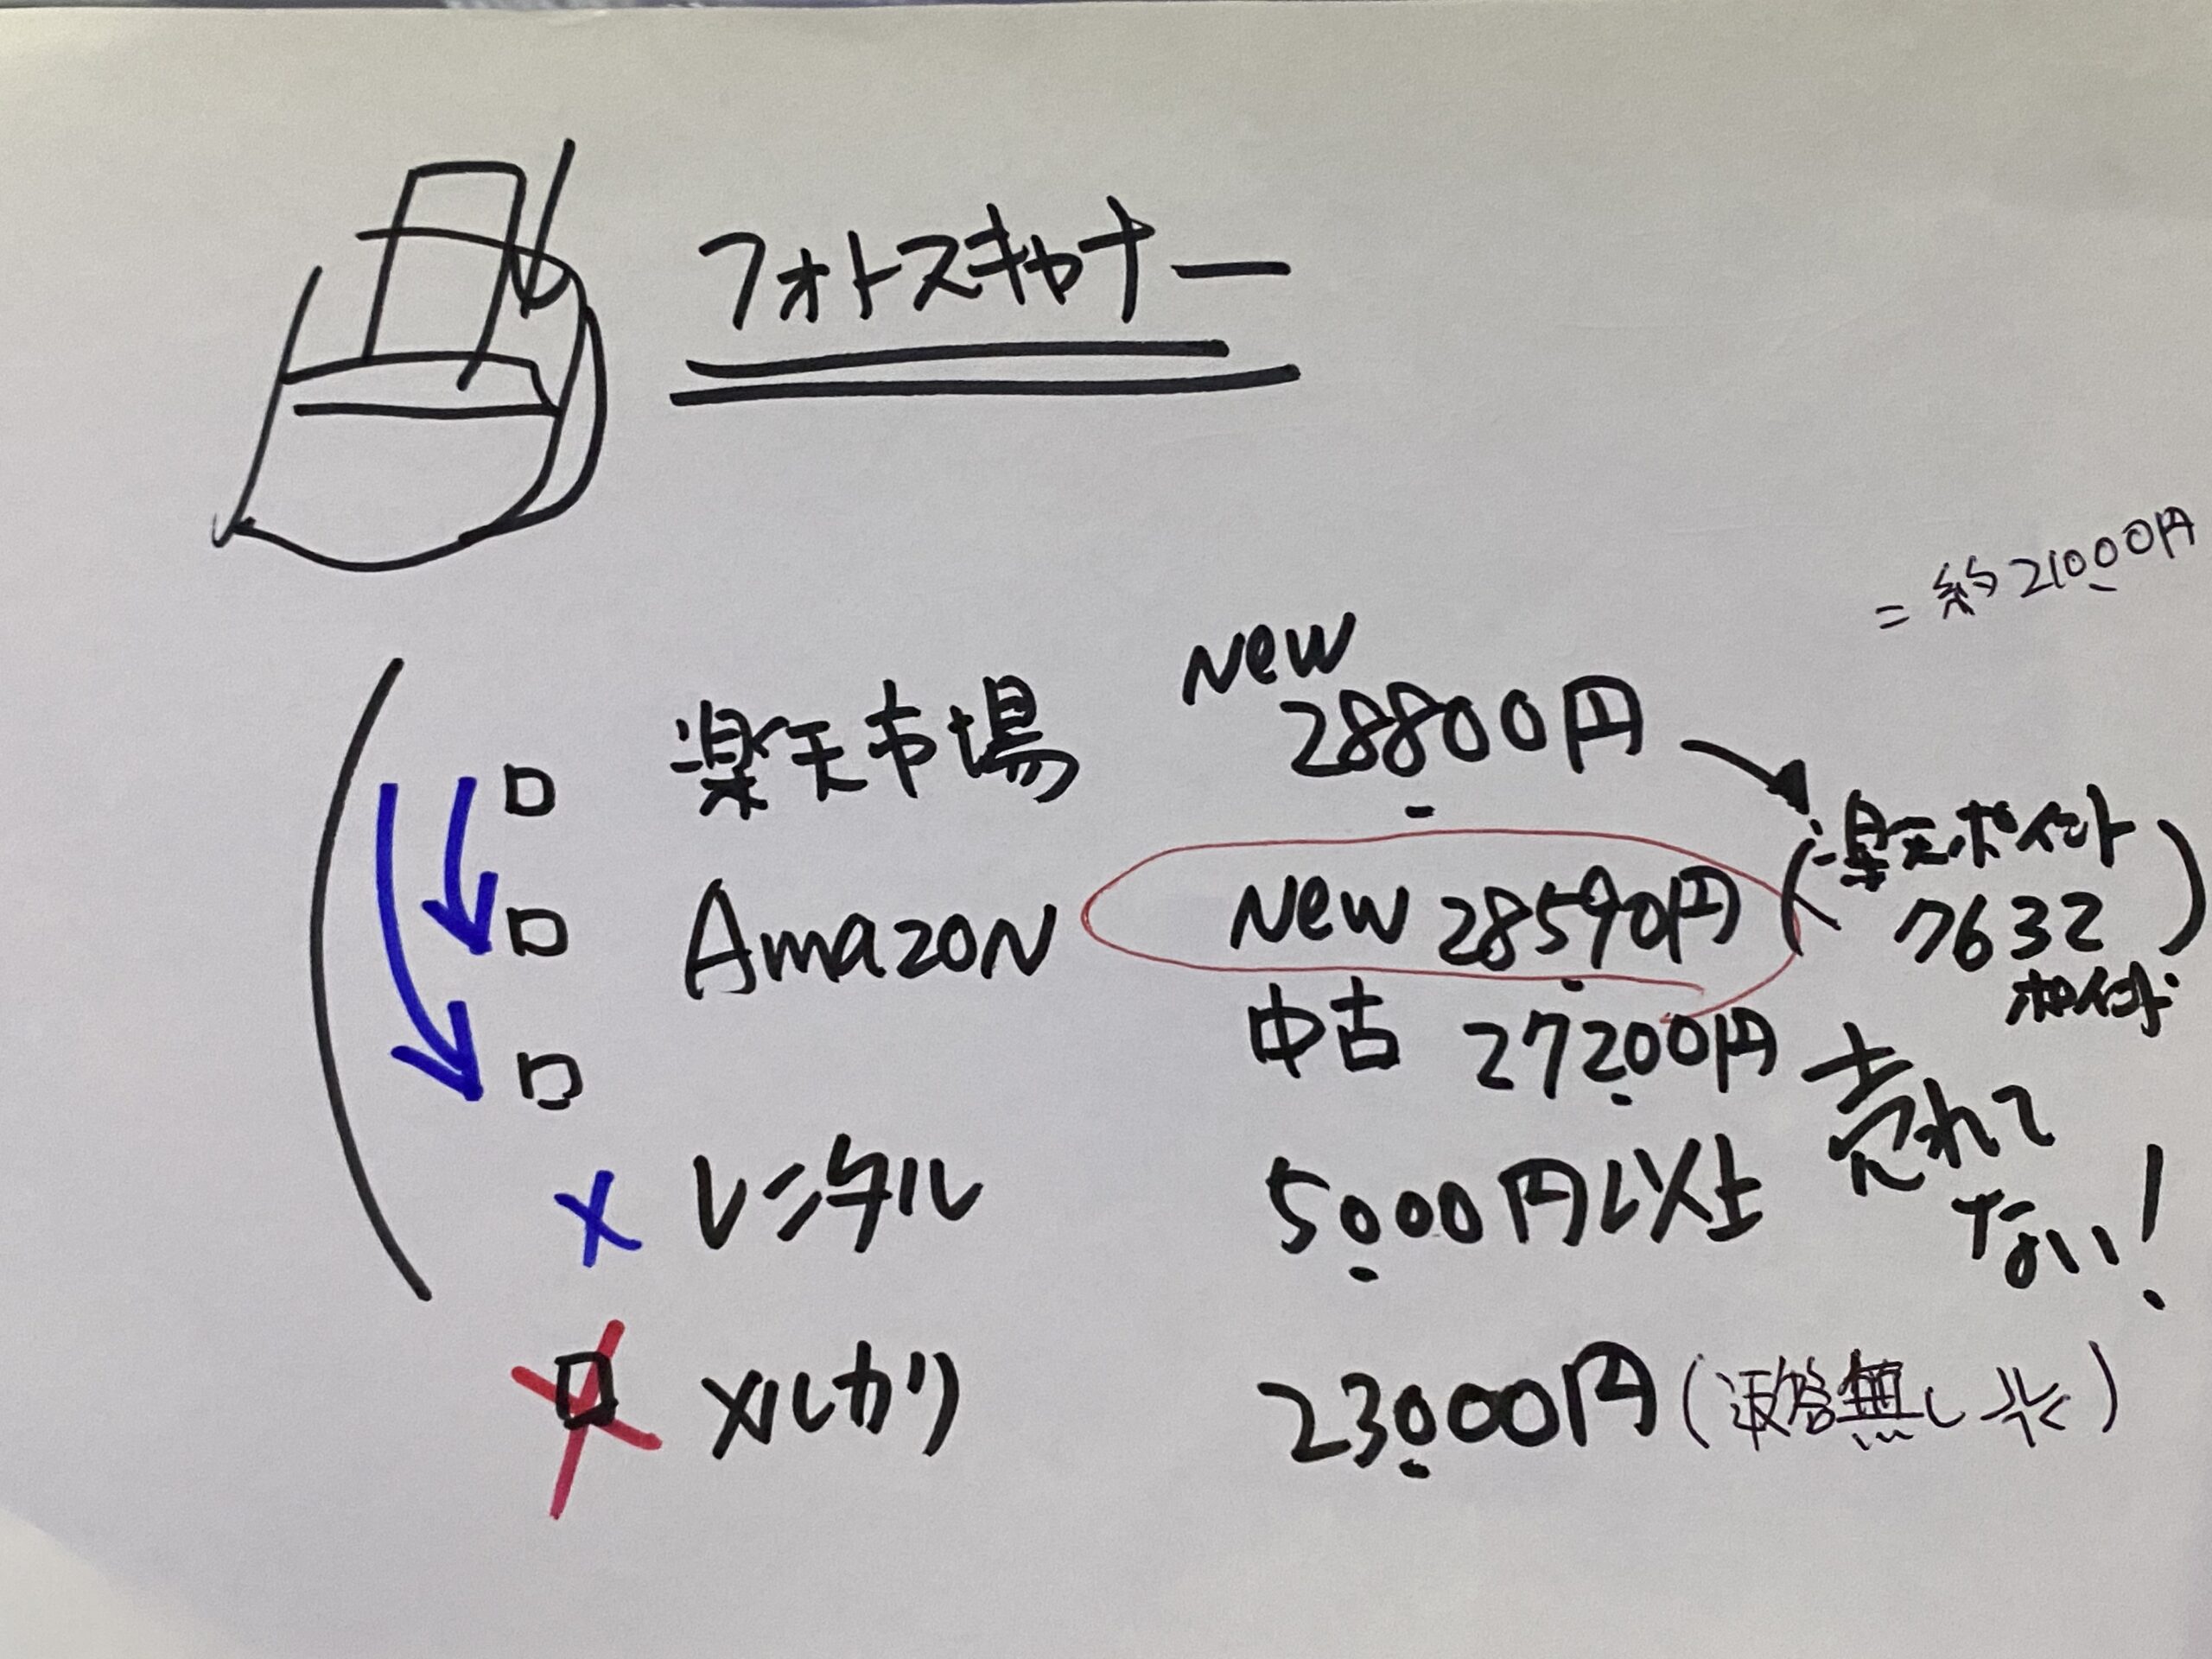 フォトスキャナー
=約21000円
New
楽天市場 28800円
(楽天ポイント
7632
ポイント)
Amazon New 28590円
中古 27200円
売れて
ない!
× レンタル 5000円以上
メルカリ 23000円(返答無し)